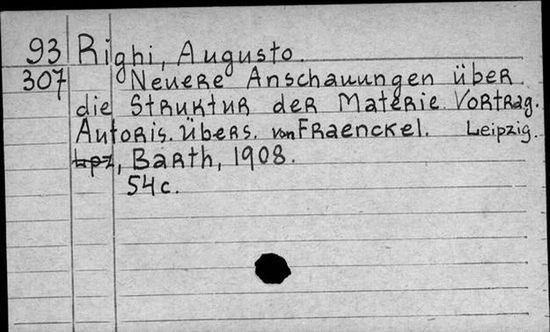 93 Righi, Augusto.
307 Neuere Anschauungen über
die Struktur der Materie. Vortrag.
Autoris. Übers. von Fraenckel. Leipzig.
Lpz, Barth, 1908.
54 c.